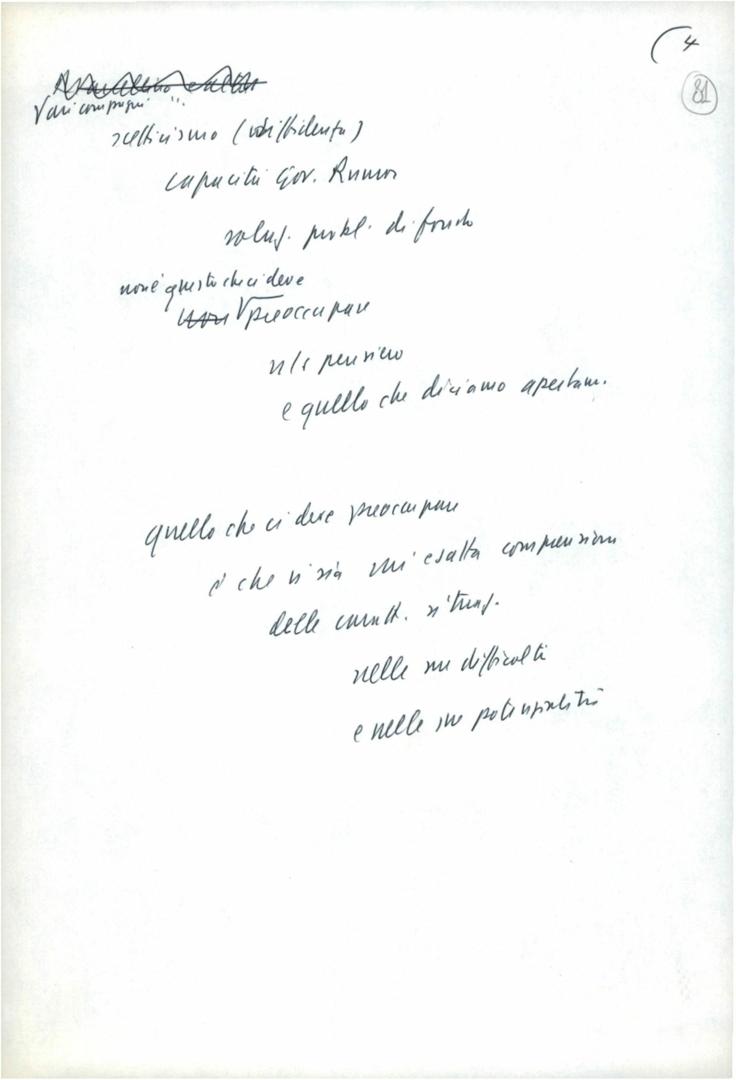 (4
81
Vari compagni
scetticismo (diffidenza)
capacità Gov. Rumor
soluz. probl. di fondo
non è questo che ci deve
non preoccupare
n/s pensiero
e quello che diciamo apertam.
quello che ci deve preoccupare
è che vi sia un'esatta comprensione
delle caratt. situaz.
nelle sue difficoltà
e nelle sue potenzialità